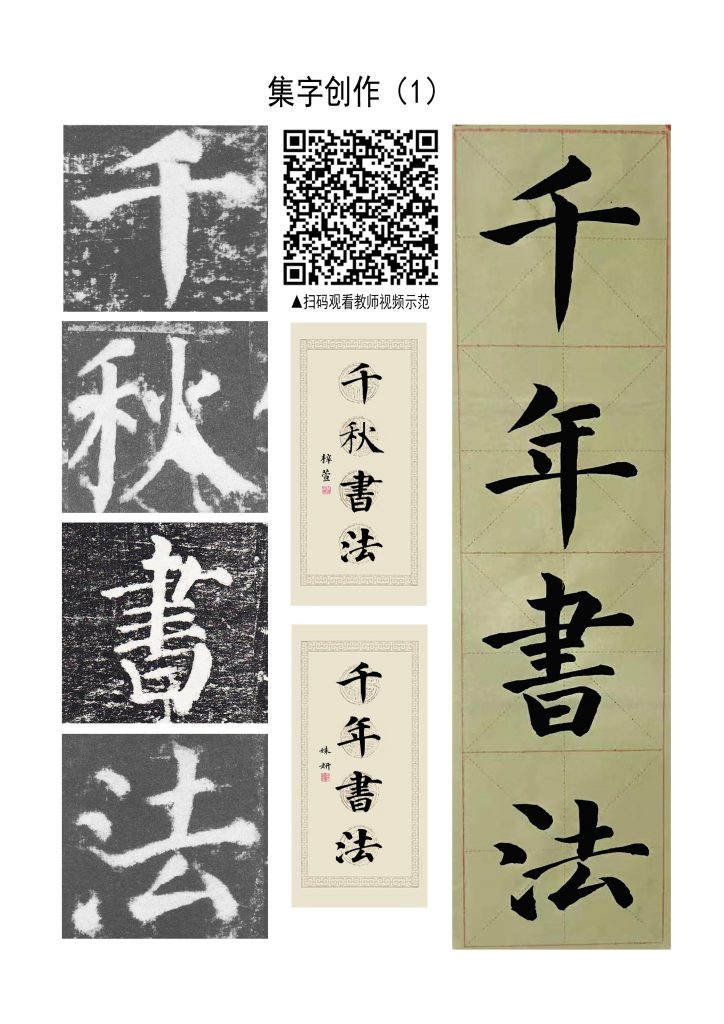 集字创作（1）
千
秋
書
法
▲扫码观看教师视频示范
千秋書法
梓萱
千年書法
姝妍
千年書法